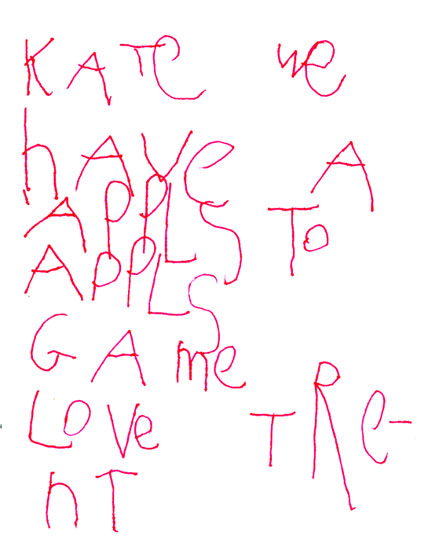 KATe we
hAVe A
APPLS To
APPLS
GAme
LOVe TRe-
nT